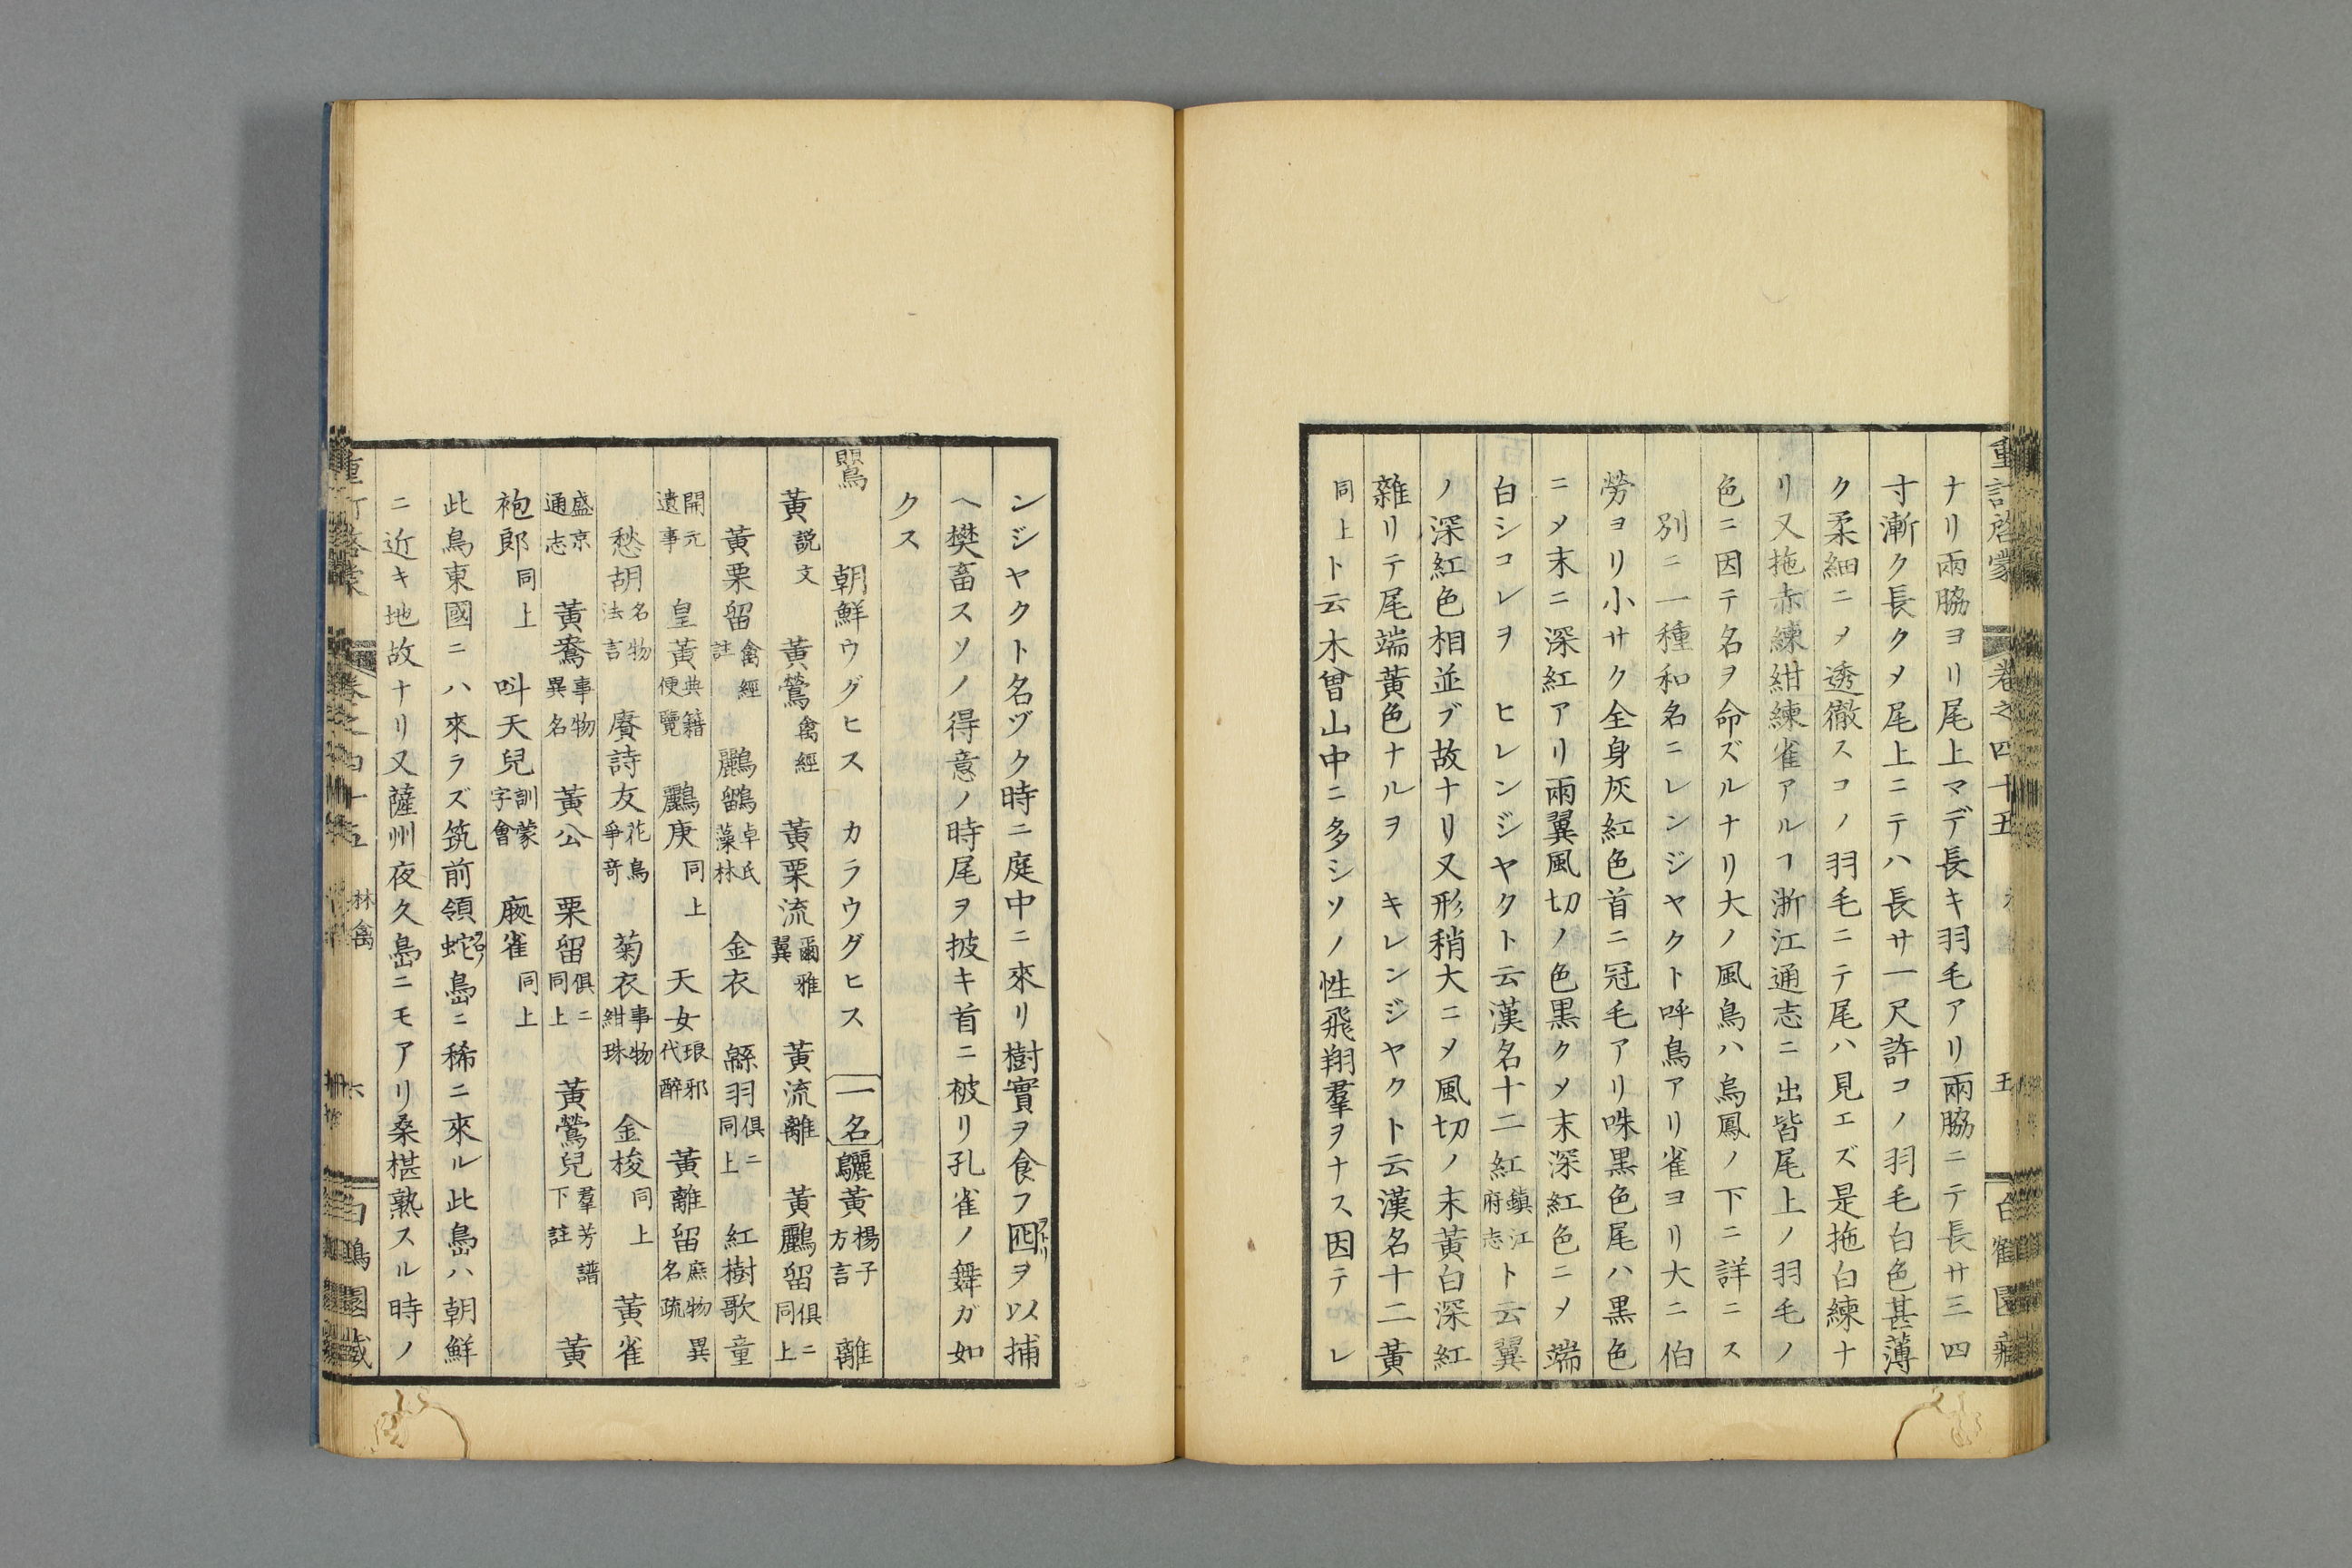 重訂啓蒙 卷之四十五 五
ナリ兩脇ヨリ尾上マデ長キ羽毛アリ兩脇ニテ長サ三四
寸漸ク長クメ尾上ニテハ長サ一尺許コノ羽毛白色甚薄
ク柔細ニメ透徹スコノ羽毛ニテ尾ハ見エズ是拖白練ナ
リ又拖赤練紺練雀アルヿ浙江通志ニ出皆尾上ノ羽毛ノ
色ニ因テ名ヲ命ズルナリ大ノ風鳥ハ烏鳳ノ下ニ詳ニス
別ニ一種和名ニレンジヤクト呼鳥アリ雀ヨリ大ニ伯
勞ヨリ小サク全身灰紅色首ニ冠毛アリ咮黑色尾ハ黑色
ニメ末ニ深紅アリ兩翼風切ノ色黒クメ末深紅色ニメ端
白シコレヲ ヒレンジヤクト云漢名十二紅鎮江府志ト云翼
ノ深紅色相並ブ故ナリ又形稍大ニメ風切ノ末黃白深紅
雜リテ尾端黃色ナルヲ キレンジヤクト云漢名十二黃
同上ト云木曾山中ニ多シソノ性飛翔羣ヲナス因テ レ
ンジヤクト名ヅク時ニ庭中ニ來リ樹實ヲ食フ囮ヲトリヲ以捕
ヘ樊畜スソノ得意ノ時尾ヲ披キ首ニ被リ孔雀ノ舞ガ如
クス
鸎 朝鮮ウグヒス カラウグヒス 一名 鸝黃楊子方言 離
黃說文 黃鶯禽經 黃栗流爾雅翼 黃流離 黃鸝留俱ニ同上
黃栗留禽經註 鸝鶹卓氏藻林 金衣 緜羽俱ニ同上 紅樹歌童
開元遺事 皇黃典籍便覽 鸝庚同上 天女琅邪代醉 黃離留庶物異名疏
愁胡名物法言 賡詩友花鳥爭奇 菊衣事物紺珠 金梭同上 黃雀
盛京通志 黃鴦事物異名 黃公 栗留俱ニ同上 黃鶯兒羣芳譜下註 黃
袍郎同上 叫天兒訓蒙字會 同上
此鳥東國ニハ來ラズ筑前領蛇島ニ稀ニ來ル此島ハ朝鮮
ニ近キ地故ナリ又薩州夜久島ニモアリ桑椹熟スル時ノ
卷之四十五 林禽 六